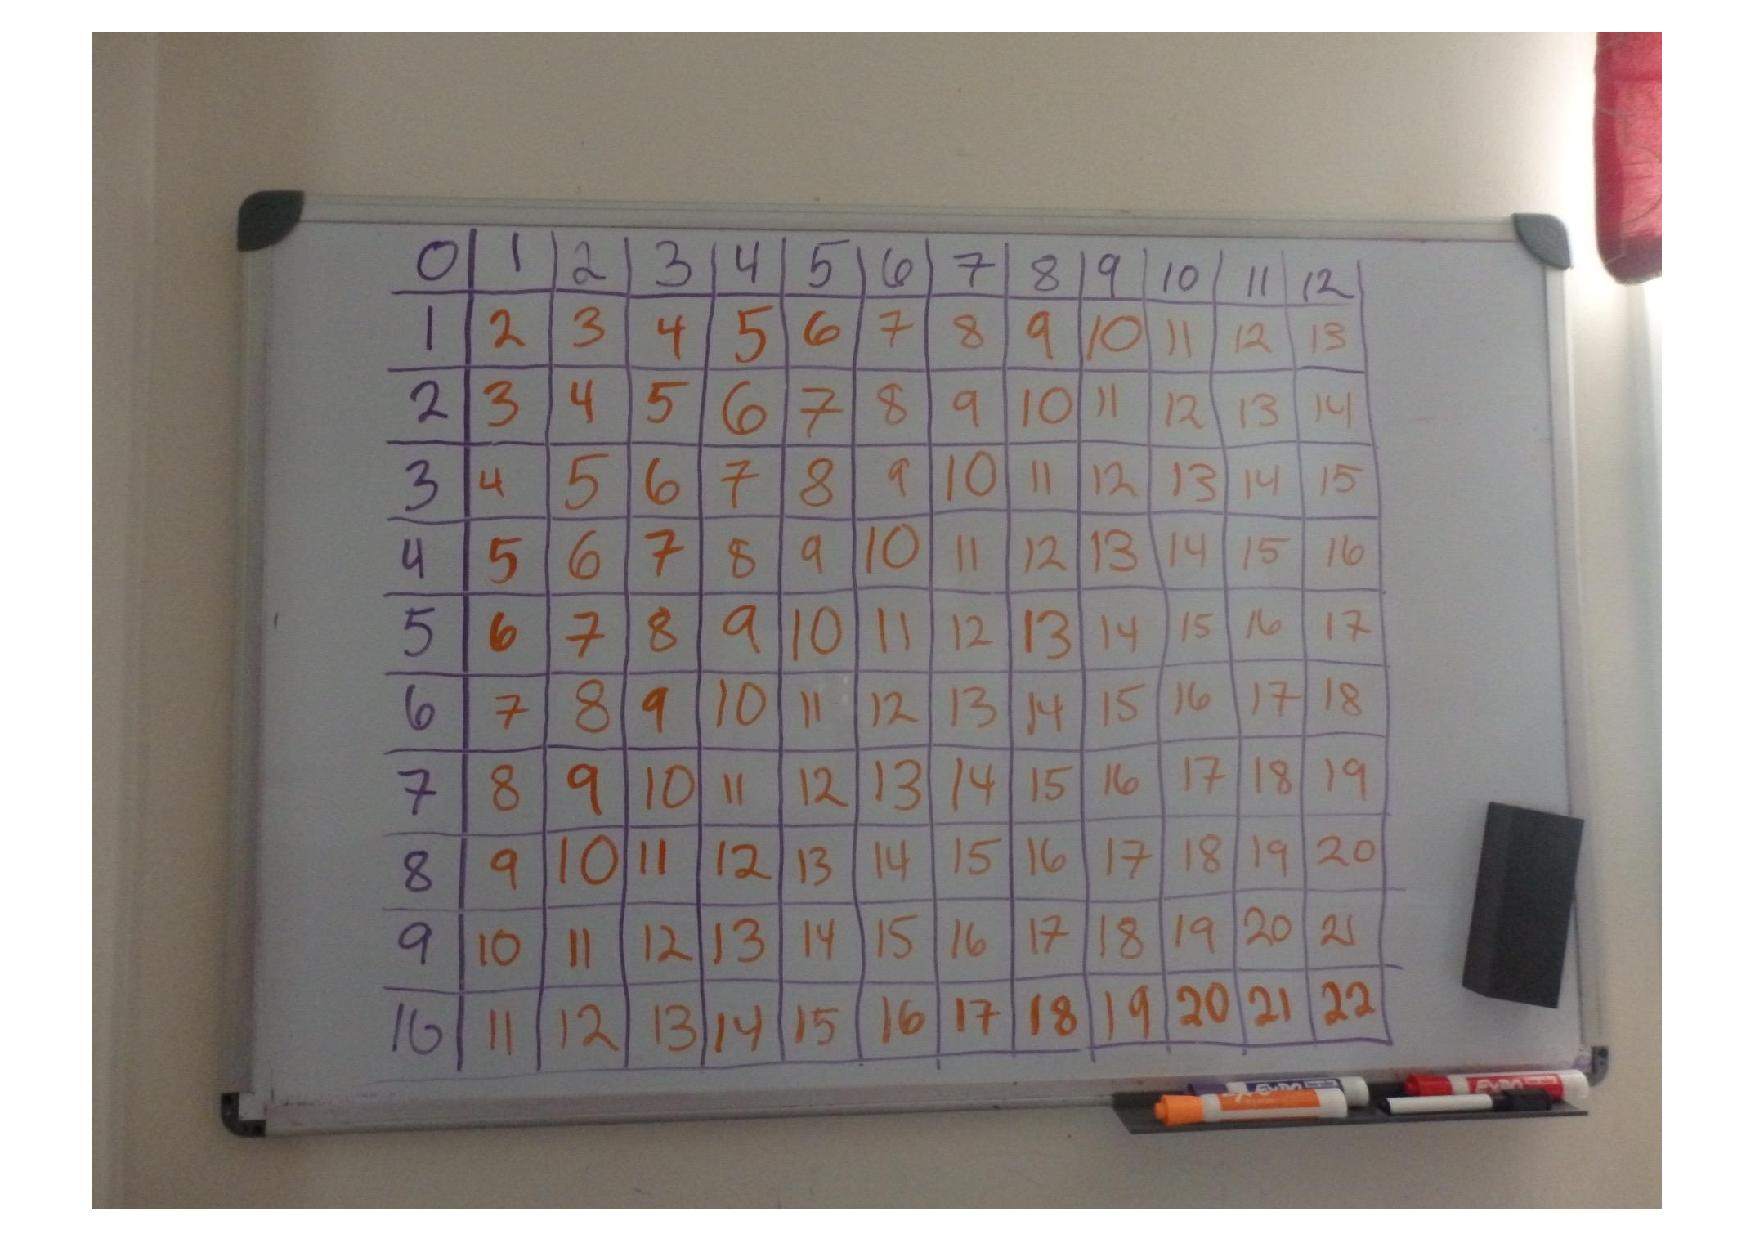 0 1 2 3 4 5 6 7 8 9 10 11 12
1 2 3 4 5 6 7 8 9 10 11 12 13
2 3 4 5 6 7 8 9 10 11 12 13 14
3 4 5 6 7 8 9 10 11 12 13 14 15
4 5 6 7 8 9 10 11 12 13 14 15 16
5 6 7 8 9 10 11 12 13 14 15 16 17
6 7 8 9 10 11 12 13 14 15 16 17 18
7 8 9 10 11 12 13 14 15 16 17 18 19
8 9 10 11 12 13 14 15 16 17 18 19 20
9 10 11 12 13 14 15 16 17 18 19 20 21
10 11 12 13 14 15 16 17 18 19 20 21 22
EXPO
EXPO